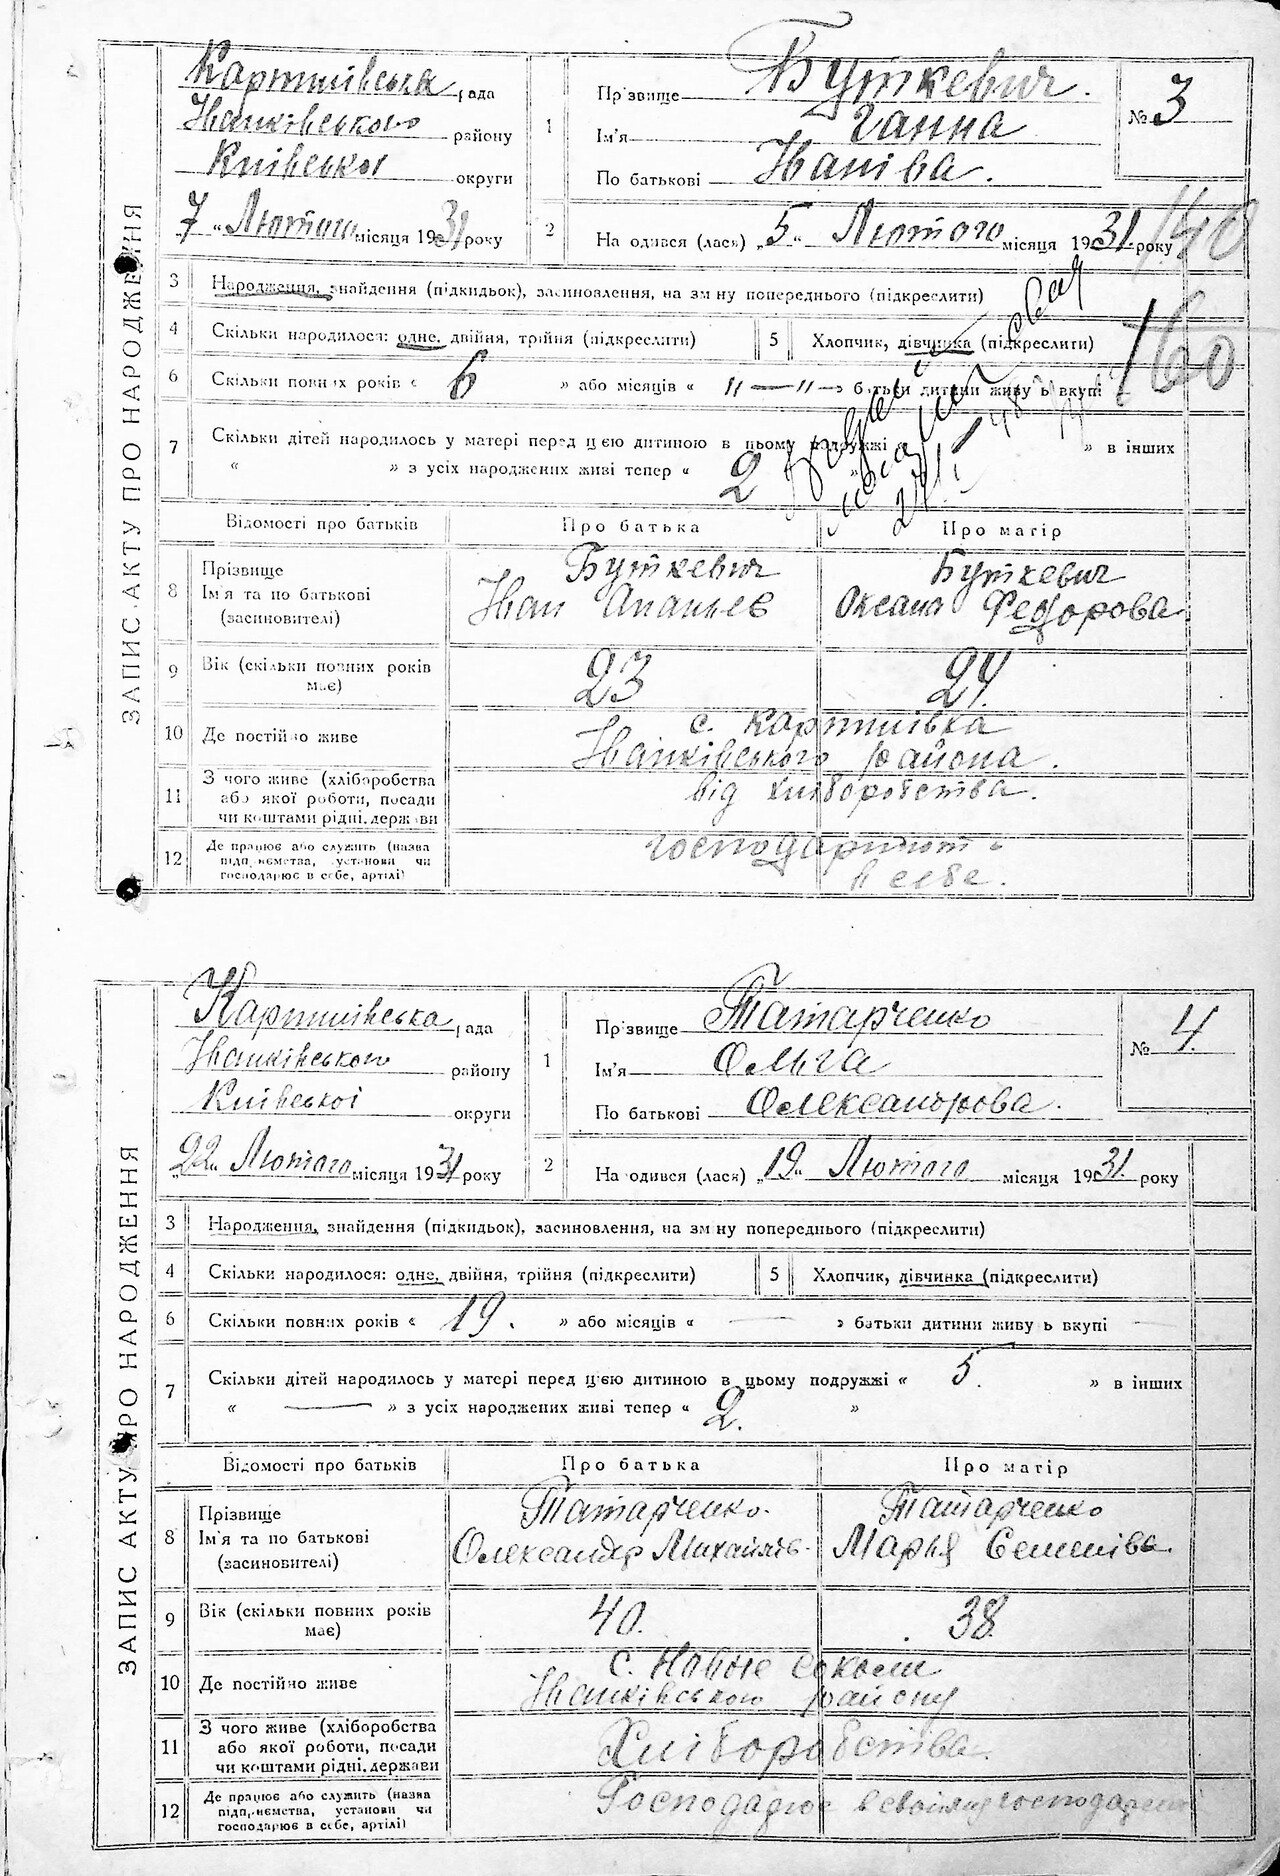 ЗАПИС АКТУ ПРО НАРОДЖЕННЯ
Картилівська рада
Іванківського району
Київської округи
7 „ Лютого місяця 1931 року
1
Прізвище Буткевич.
Ім'я Ганна
По батькові Іванівa.
№ 3
2
На одився (лася) „5„ Лютого місяця 1931 року
140
160
3 Народження, знайдення (підкидьок), засиновлення, на зм ну попереднього (підкреслити)
4 Скільки народилося: одне, двійня, трійня (підкреслити)
5 Хлопчик, дівчинка (підкреслити)
6 Скільки повних років « 6 » або місяців « „ — „ » батьки дитини живу ь вкупі
7 Скільки дітей народилось у матері перед цією дитиною в цьому подружжі « » в інших
« » з усіх народжених живі тепер « 2 »
Відомості про батьків
Про батька
Про матір
8 Прізвище
Ім'я та по батькові
(засиновителі)
Буткевич
Іван Ананьев
Буткевич
Оксана Федорова
9 Вік (скільки повних років
має)
23
24.
10 Де постійно живе
с. Картилівка
Іванківського района.
11 З чого живе (хліборобства
або якої роботи, посади
чи коштами рідні, держави
від хліборобства.
12 Де працює або служить (назва
підприємства, установи чи
господарює в себе, артілі)
господарюют
в себе.
ЗАПИС АКТУ ПРО НАРОДЖЕННЯ
Картилівська рада
Іванківського району
Київської округи
„22„ Лютого місяця 1931 року
1
Прізвище Татарченко
Ім'я Ольга
По батькові Олександрова.
№ 4.
2
На одився (лася) „19„ Лютого місяця 1931. року
3 Народження, знайдення (підкидьок), засиновлення, на зм ну попереднього (підкреслити)
4 Скільки народилося: одне, двійня, трійня (підкреслити)
5 Хлопчик, дівчинка (підкреслити)
6 Скільки повних років « 19. » або місяців « — » батьки дитини живу ь вкупі
7 Скільки дітей народилось у матері перед цією дитиною в цьому подружжі « 5. » в інших
« — » з усіх народжених живі тепер « 2. »
Відомості про батьків
Про батька
Про матір
8 Прізвище
Ім'я та по батькові
(засиновителі)
Татарченко.
Олександр Михайлів.
Татарченко
Марья Семенівa.
9 Вік (скільки повних років
має)
40.
38.
10 Де постійно живе
с. Новые Соколи
Іванківського району
11 З чого живе (хліборобства
або якої роботи, посади
чи коштами рідні, держави
Хліборобства.
12 Де працює або служить (назва
підприємства, установи чи
господарює в себе, артілі)
Господарює в своїму господарстві